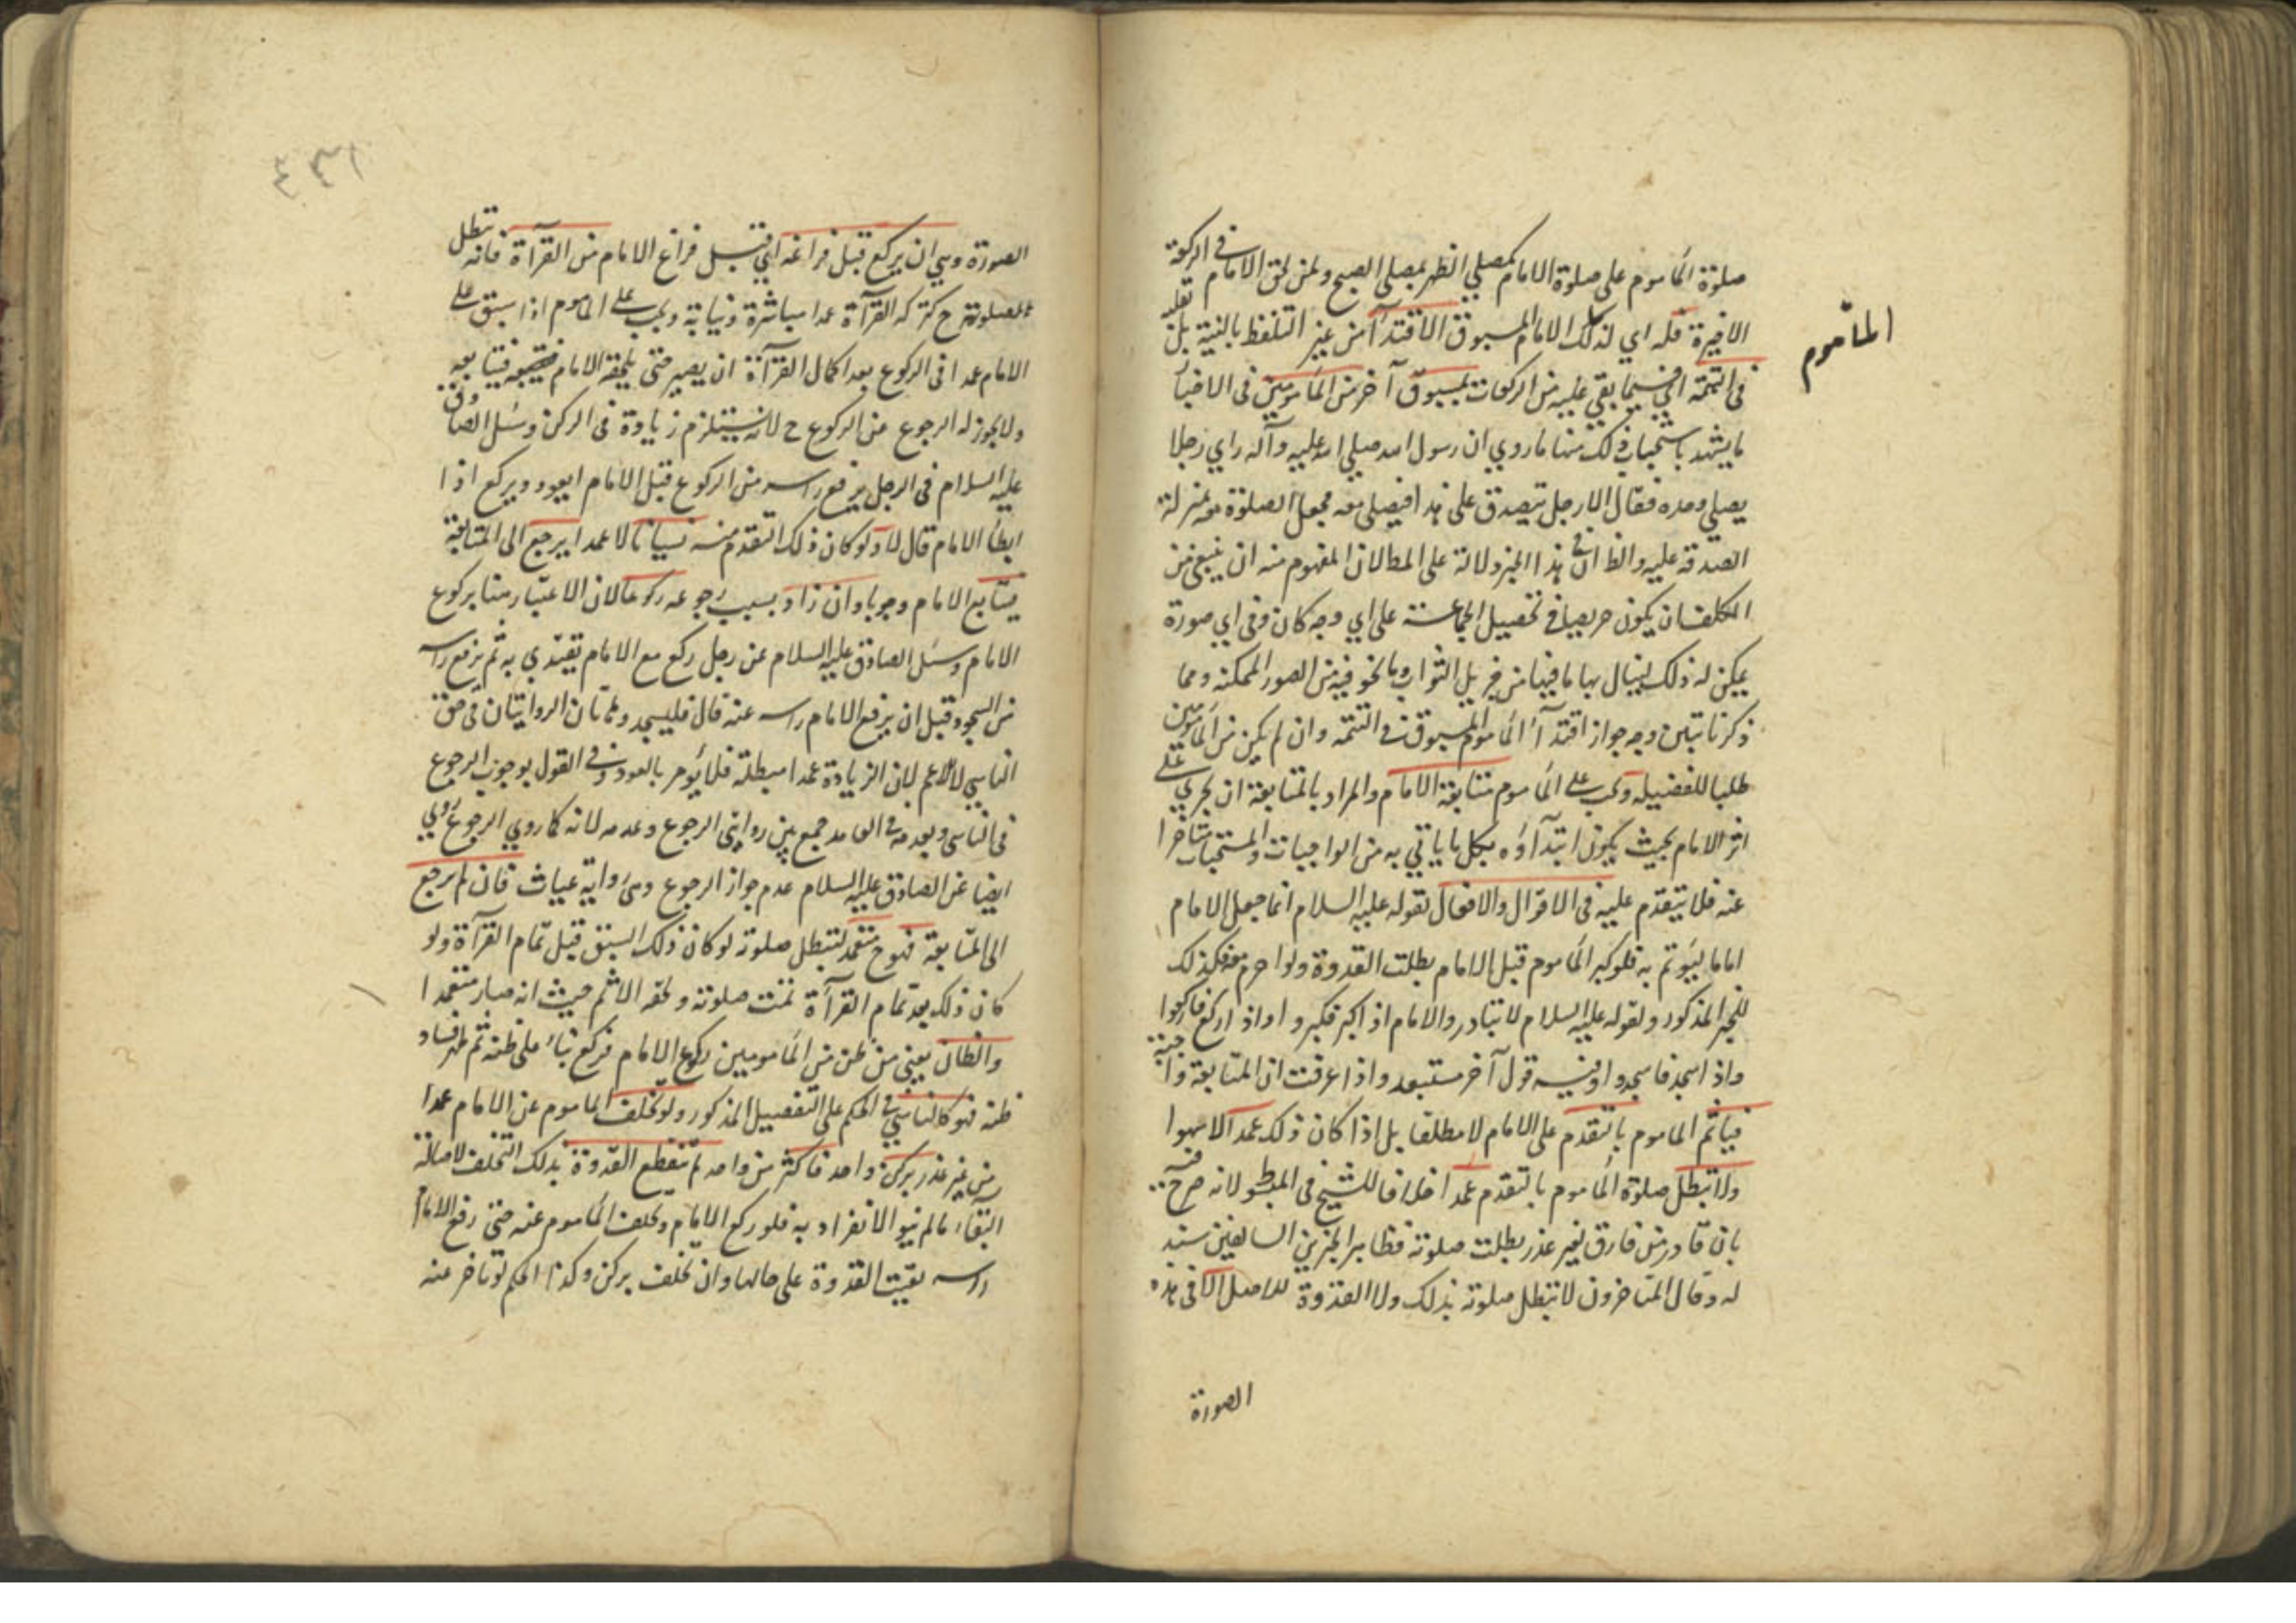 صلوة المأموم على صلوة الامام كمصلي الظهر بمصلي الصبح ولمن لحق الامام في الركعة
الاخيرة فله اي لذلك الامام المسبوق الاقتدآء من غير التلفظ بالنية بل
في التتمة اي فيما بقي عليه من الركعات بمسبوق آخر من المأمومين في الاخبار
ما يشهد باستحباب ذلك منها ما روي ان رسول الله صلي الله عليه وآله راي رجلا
يصلي وحده فقال الا رجل يتصدق على هذا فيصلي معه فجعل الصلوة معه بمنزلة
الصدقة عليه والظ ان في هذا الخبر دلالة على المط لان المفهوم منه ان ينبغي من
المكلف ان يكون حريصا في تحصيل الجماعة على اي وجه كان وفي اي صورة
يمكن له ذلك لينال بها ما فيها من جزيل الثواب وما نحن فيه من الصور الممكنة ومما
ذكرنا تبين وجه جواز اقتدآء المأموم المسبوق في التتمة وان لم يكن من المأمومين
طلبا للفضيلة ويجب على المأموم متابعة الامام والمراد بالمتابعة ان يجري على
اثر الامام بحيث يكون ابتدآؤه بكل ما ياتي به من الواجبات والمستحبات متاخرا
عنه فلا يتقدم عليه في الاقوال والافعال لقوله عليه السلام انما جعل الامام
اماما ليؤتم به فلو كبر المأموم قبل الامام بطلت القدوة ولو احرم معه فكذلك
للخبر المذكور ولقوله عليه السلام لا تبادروا الامام اذا كبر فكبروا واذا ركع فاركعوا
واذا سجد فاسجدوا وفيه قول آخر مستبعد واذا عرفت ان المتابعة واجبة
فيأثم المأموم بالتقدم على الامام لا مطلقا بل اذا كان ذلك عمدا لا سهوا
ولا تبطل صلوة المأموم بالتقدم عمدا خلافا للشيخ في المبسوط لانه صرح فيه
بان من فارق لغير عذر بطلت صلوته فظاهر الخبرين السالفين سند
له وقال المتاخرون لا تبطل صلوته بذلك ولا القدوة للاصل الا في هذه
الصورة
المأموم
الصورة وهي ان يركع قبل فراغه اي قبل فراغ الامام من القرآءة فانه تبطل
الصلوة ح لتركه القرآءة عمدا مباشرة ونيابة ويجب على المأموم اذا سبق على
الامام عمدا في الركوع بعد اكمال القرآءة ان يصبر حتى يلحقه الامام فيتابعه
ولا يجوز له الرجوع من الركوع ح لانه يستلزم زيادة في الركن وسئل الصادق
عليه السلام في الرجل يرفع راسه من الركوع قبل الامام ايعود ويركع اذا
ابطأ الامام قال لا ولو كان ذلك التقدم منه نسيانا لا عمدا يرجع الى المتابعة
فيتابع الامام وجوبا وان زاد بسبب رجوعه ركوعا لان الاعتبار هنا بركوع
الامام وسئل الصادق عليه السلام عن رجل ركع مع الامام يقتدي به ثم يرفع راسه
من السجود قبل ان يرفع الامام راسه عنه قال فليسجد وهاتان الروايتان في حق
الناسي لا الاعم لان الزيادة عمدا مبطلة فلا يؤمر بالعود وفي القول بوجوب الرجوع
في الناسي وبعدمه في العامد جمع بين روايتي الرجوع وعدمه لانه كما روي الرجوع روي
ايضا عن الصادق عليه السلام عدم جواز الرجوع وهي رواية غياث فان لم يرجع
الى المتابعة فهو ح متعمد تبطل صلوته لو كان ذلك السبق قبل تمام القرآءة ولو
كان ذلك بعد تمام القرآءة تمت صلوته ولحقه الاثم حيث انه صار متعمدا
والظان يعني من ظن من المأمومين ركوع الامام فركع بناء على ظنه ثم ظهر فساد
ظنه فهو كالناسي في الحكم على التفصيل المذكور ولو تخلف المأموم عن الامام عمدا
من غير عذر بركن واحد فاكثر من واحد لم تنقطع القدوة بذلك التخلف لاصالة
البقاء ما لم ينو الانفراد به فلو ركع الامام وتخلف المأموم عنه حتى رفع الامام
راسه بقيت القدوة على حالها وان تخلف بركن وكذا الحكم لو تاخر عنه